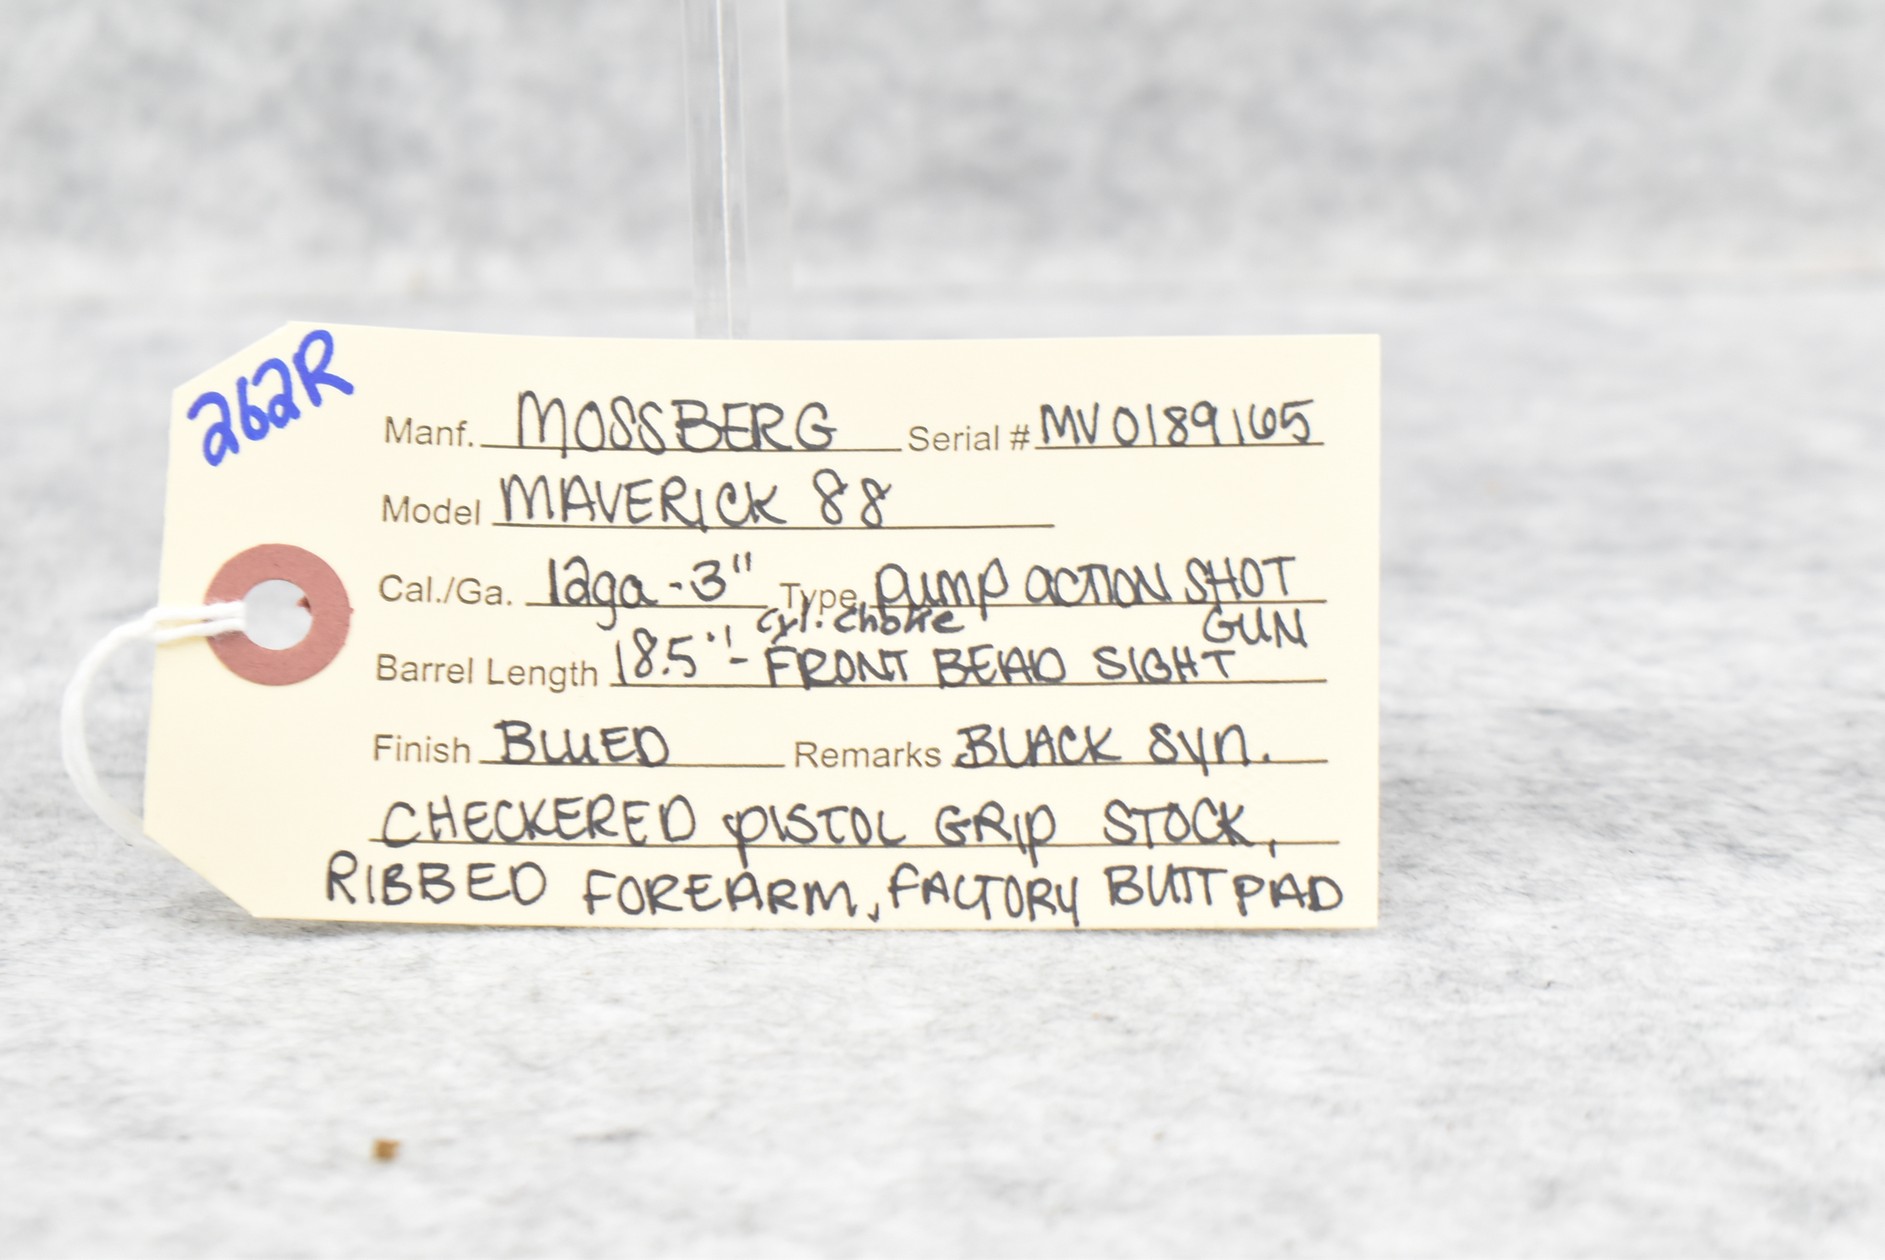 262R
Manf. MOSSBERG Serial # MV0189165
Model MAVERICK 88
Cal./Ga. 12ga - 3" Type PUMP ACTION SHOT
GUN
Cyl. Choke
Barrel Length 18.5" - FRONT BEAD SIGHT
Finish BLUED Remarks BLACK SYN.
CHECKERED PISTOL GRIP STOCK,
RIBBED FOREARM, FACTORY BUTT PAD